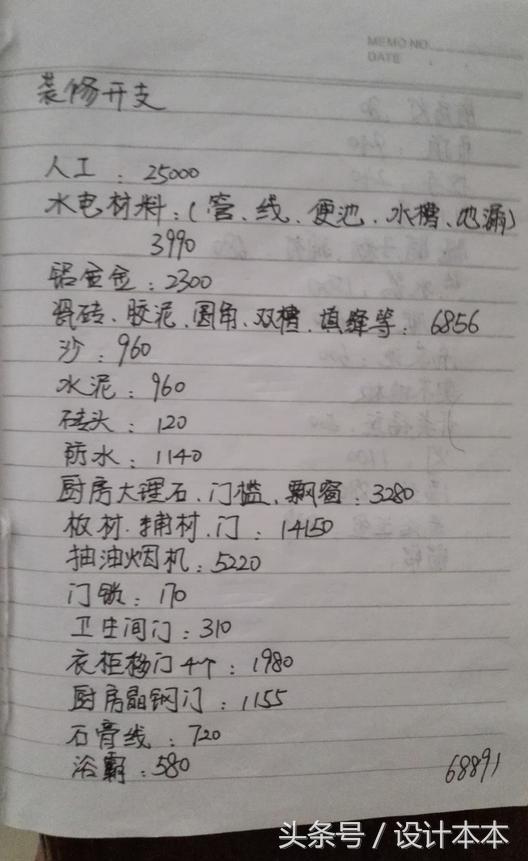 MEMO NO.
DATE
装修开支
人工：25000
水电材料：(管、线、便池、水槽、地漏)
3990
铝金金：2300
瓷砖、胶泥、圆角、双槽、填缝等：6856
沙：960
水泥：960
砖头：120
防水：1140
厨房大理石、门槛、飘窗：3280
板材、辅材、门：14150
抽油烟机：5220
门锁：170
卫生间门：310
衣柜移门4个：1980
厨房晶钢门：1155
石膏线：720
浴霸：580
68891
头条号 / 设计本本